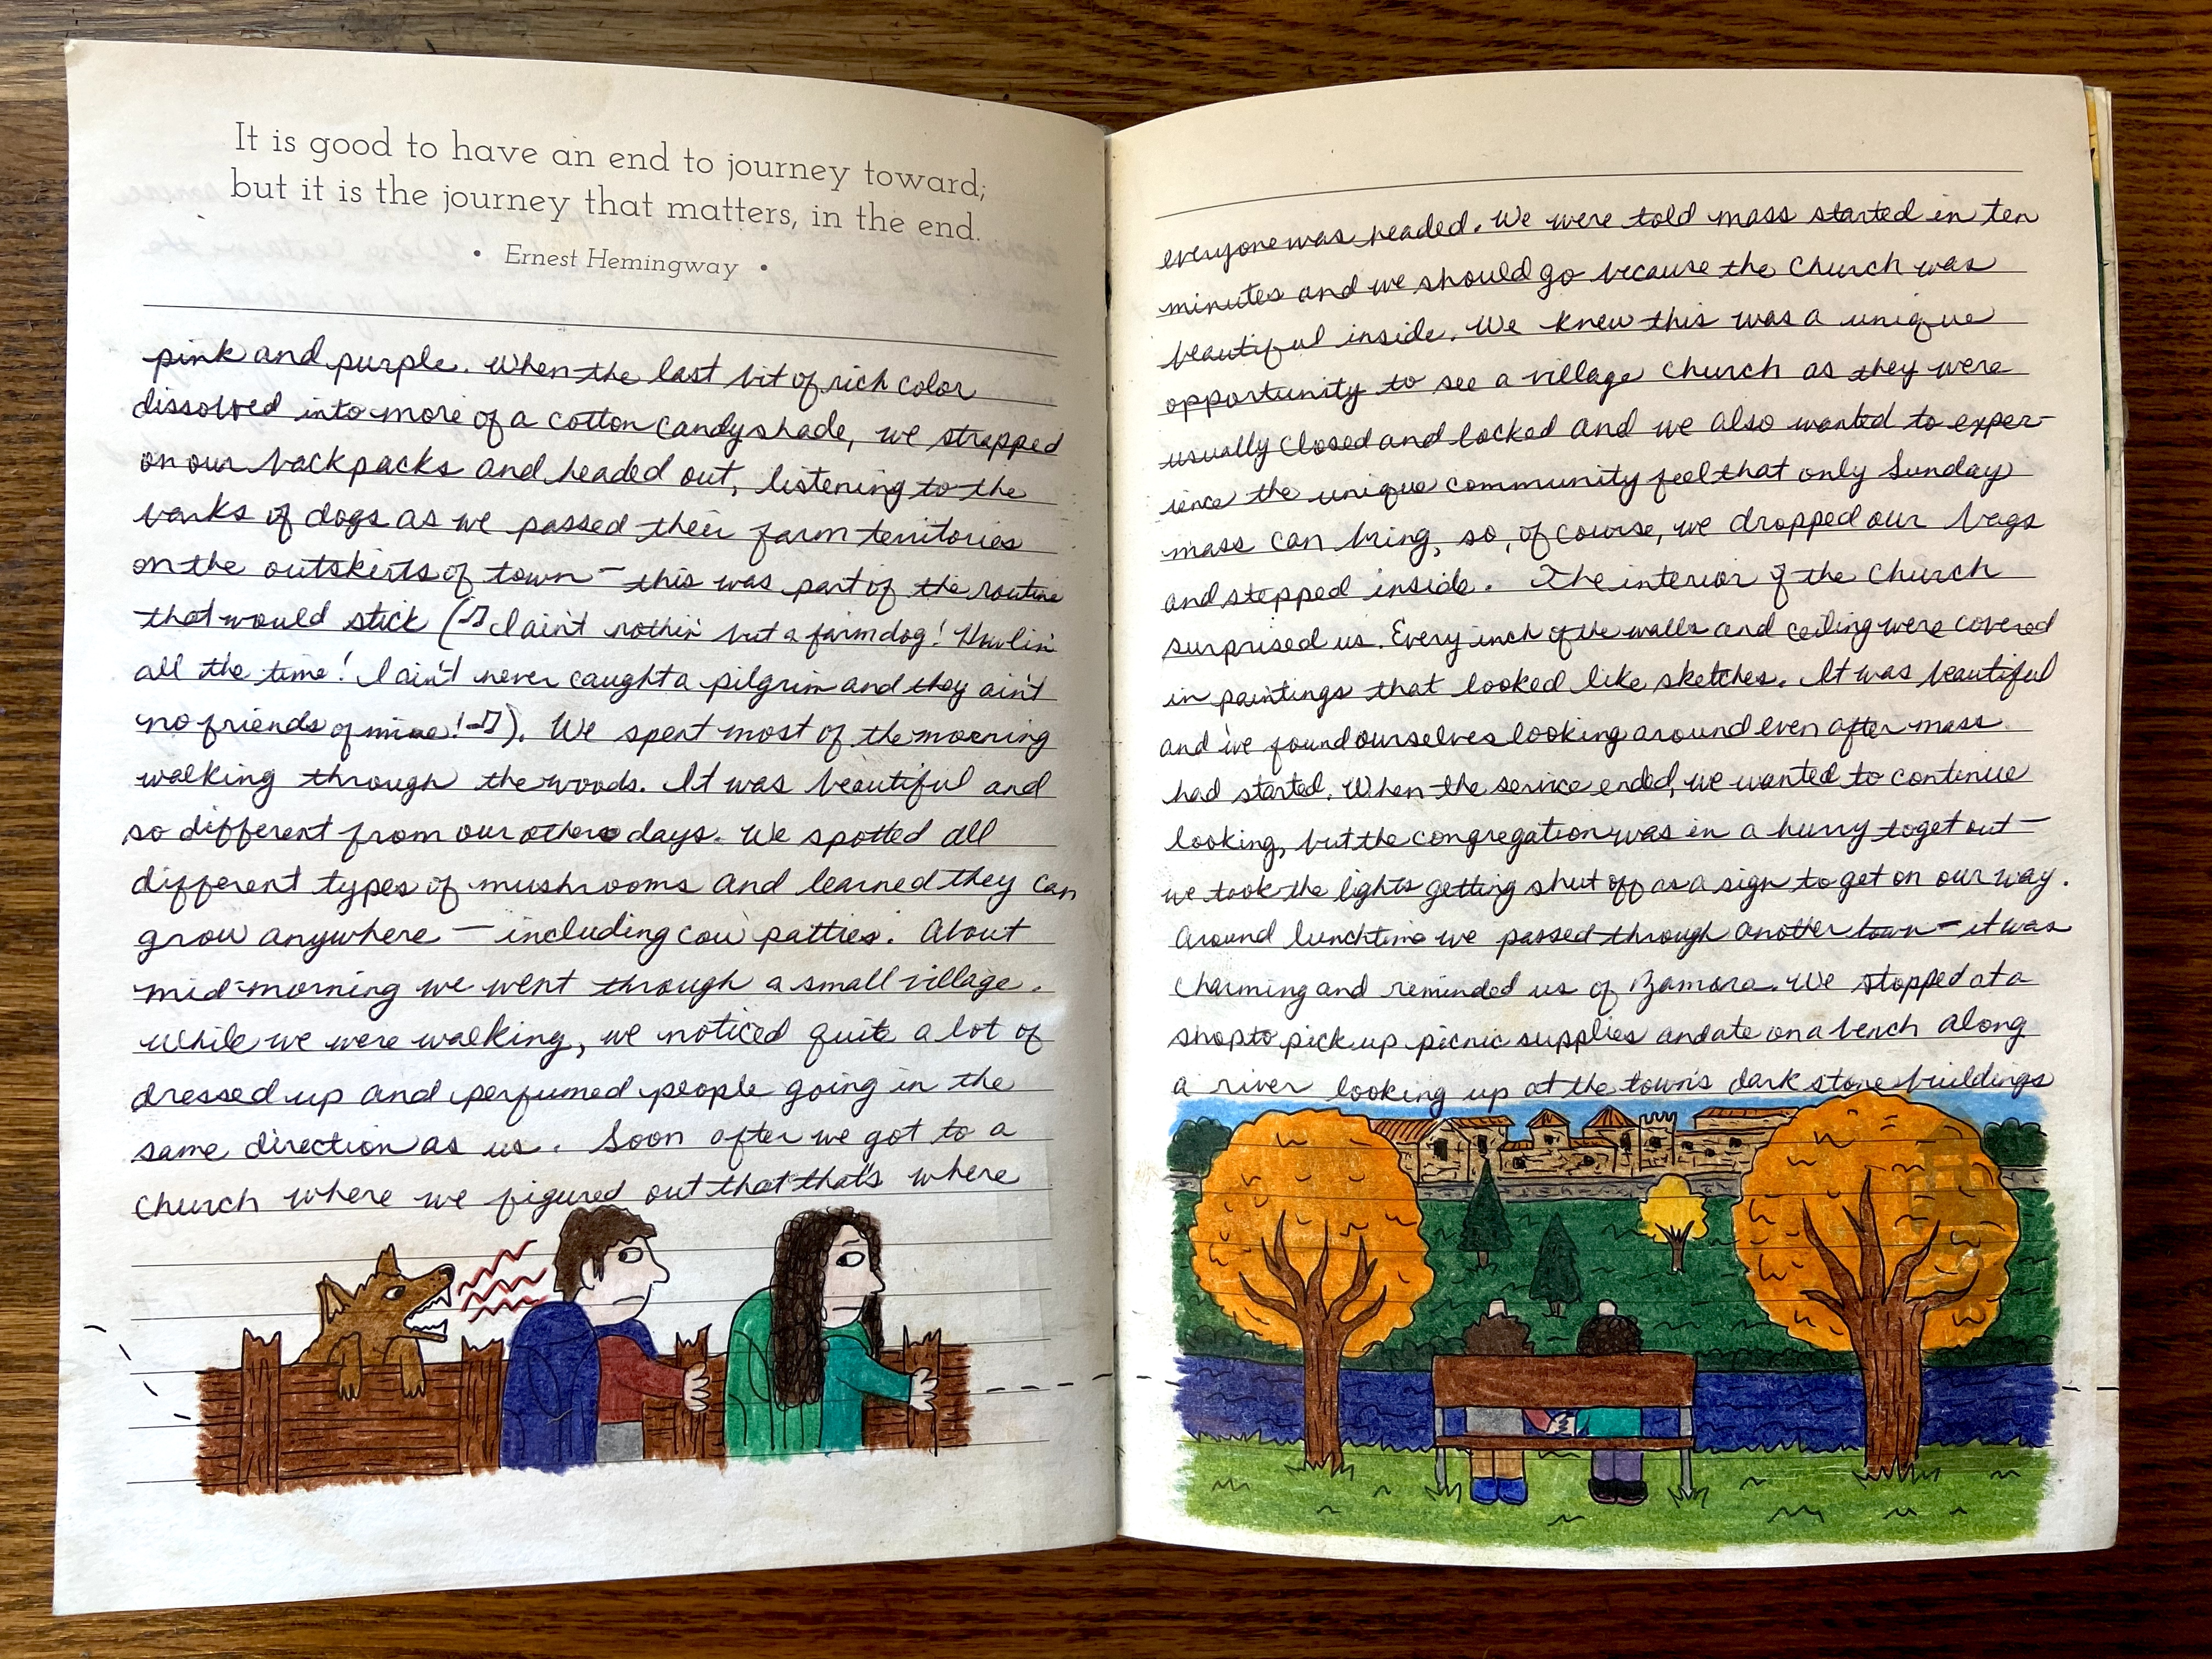 It is good to have an end to journey toward;
but it is the journey that matters, in the end.
• Ernest Hemingway •
pink and purple. When the last bit of rich color
dissolved into more of a cotton candy shade, we strapped
on our backpacks and headed out, listening to the
barks of dogs as we passed their farm territories
on the outskirts of town – this was part of the routine
that would stick (♫ I ain't nothin' but a farm dog! Howlin'
all the time! I ain't never caught a pilgrim and they ain't
no friends of mine! ♫). We spent most of the morning
walking through the woods. It was beautiful and
so different from our others days. We spotted all
different types of mushrooms and learned they can
grow anywhere – including cow patties. About
mid-morning we went through a small village.
While we were walking, we noticed quite a lot of
dressed up and perfumed people going in the
same direction as us. Soon after we got to a
church where we figured out that that's where
everyone was headed. We were told mass started in ten
minutes and we should go because the church was
beautiful inside. We knew this was a unique
opportunity to see a village church as they were
usually closed and locked and we also wanted to exper-
ience the unique community feel that only Sunday
mass can bring, so, of course, we dropped our bags
and stepped inside. The interior of the church
surprised us. Every inch of the walls and ceiling were covered
in paintings that looked like sketches. It was beautiful
and we found ourselves looking around even after mass
had started. When the service ended, we wanted to continue
looking, but the congregation was in a hurry to get out –
we took the lights getting shut off as a sign to get on our way.
Around lunchtime we passed through another town – it was
charming and reminded us of Zamora. We stopped at a
shop to pick up picnic supplies and ate on a bench along
a river looking up at the town's dark stone buildings